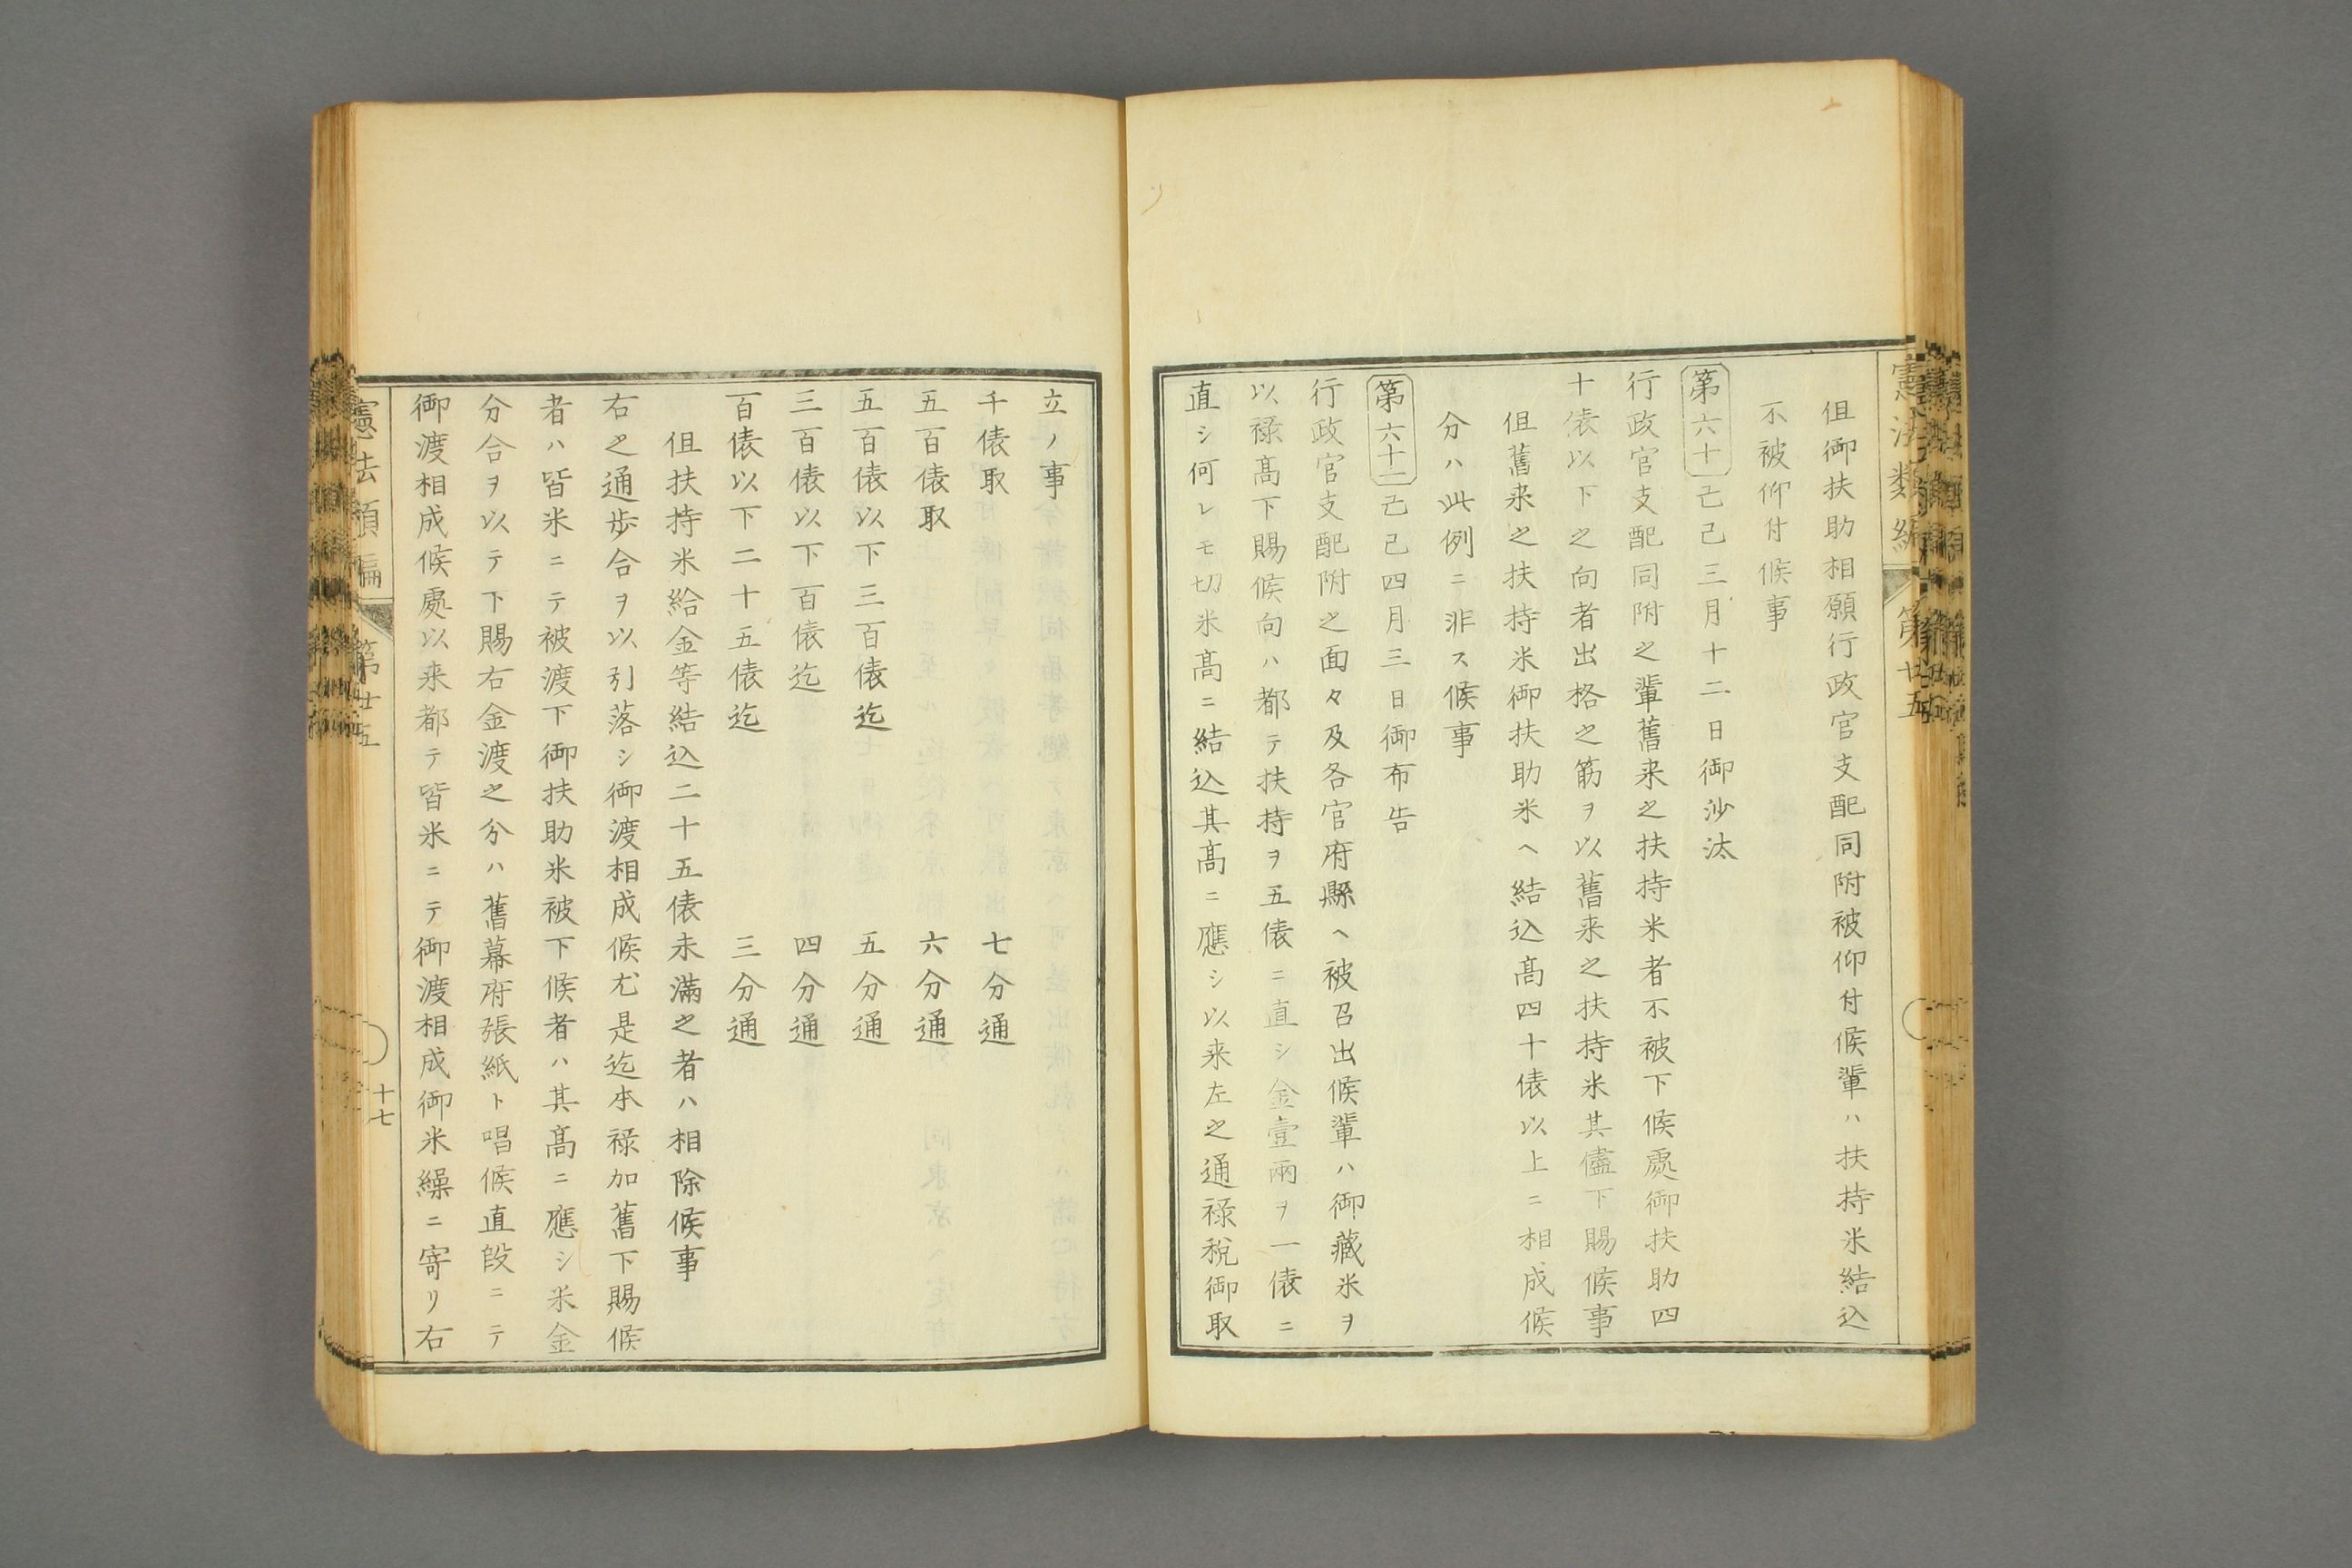 憲法類編 第廿五
但御扶助相願行政官支配同附被仰付候輩ハ扶持米結込
不被仰付候事
第六十 己巳三月十二日御沙汰
行政官支配同附之輩舊来之扶持米者不被下候處御扶助四
十俵以下之向者出格之筋ヲ以舊来之扶持米其儘下賜候事
但舊来之扶持米御扶助米ヘ結込髙四十俵以上ニ相成候
分ハ此例ニ非ス候事
第六十一 己巳四月三日御布告
行政官支配附之面々及各官府縣ヘ被召出候輩ハ御藏米ヲ
以禄髙下賜候向ハ都テ扶持ヲ五俵ニ直シ金壹兩ヲ一俵ニ
直シ何レモ切米髙ニ結込其髙ニ應シ以来左之通禄税御取
立ノ事
千俵取 七分通
五百俵取 六分通
五百俵以下三百俵迄 五分通
三百俵以下百俵迄 四分通
百俵以下二十五俵迄 三分通
但扶持米給金等結込二十五俵未滿之者ハ相除候事
右之通歩合ヲ以引落シ御渡相成候尤是迄本禄加舊下賜候
者ハ皆米ニテ被渡下御扶助米被下候者ハ其髙ニ應シ米金
分合ヲ以テ下賜右金渡之分ハ舊幕府張紙ト唱候直段ニテ
御渡相成候處以来都テ皆米ニテ御渡相成御米繰ニ寄リ右
憲法類編 第廿五 十七